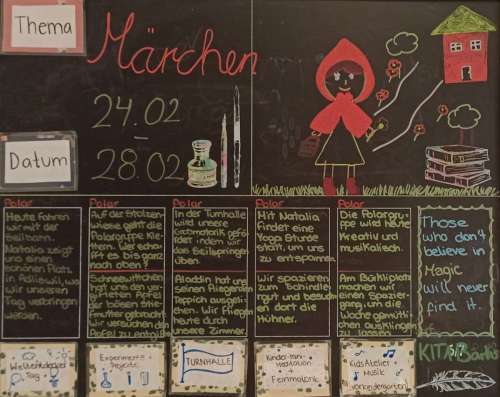 Thema
Märchen
24.02
-
28.02
Datum
Polar
Heute fahren
wir mit der
Seilbahn.
Natalia zeigt
uns einen
schönen Platz
in Adliswil, wo
wir unseren
Tag verbringen
werden.
Polar
Auf der Stolzen-
wiese geht die
Polargruppe Klet-
tern. Wer schafft
es bis ganz
nach oben?
Schneewittchen
hat uns den ver-
gifteten Apfel
der bösen Stief-
mutter gebracht.
Wir versuchen den
Apfel zu entgiften
Polar
In der Turnhalle
wird unsere
Grobmotorik geför-
dert indem wir
das Seilspringen
üben.
Aladdin hat uns
seinen fliegenden
Teppich ausgelie-
hen. Wir fliegen
heute durch
unsere Zimmer.
Polar
Mit Natalia
findet eine
Yoga Stunde
statt, um uns
zu entspannen.
Wir spazieren
zum Schindle-
gut und besuch-
en dort die
Hühner.
Polar
Die Polargru-
ppe wird heute
Kreativ und
musikalisch.
Am Bürkliplatz
machen wir
einen Spazier-
gang, um die
Woche gemütli-
chen ausklingen
zu lassen.
Those
who don't
believe in
Magic
will never
find it.
Weltentdecker
Tag
Experimente +
Projekte
TURNHALLE
Kinder-mini-
Meditation
+
Feinmotorik
KidsAtelier +
Musik
Vorkindergarten
KITA Bärli